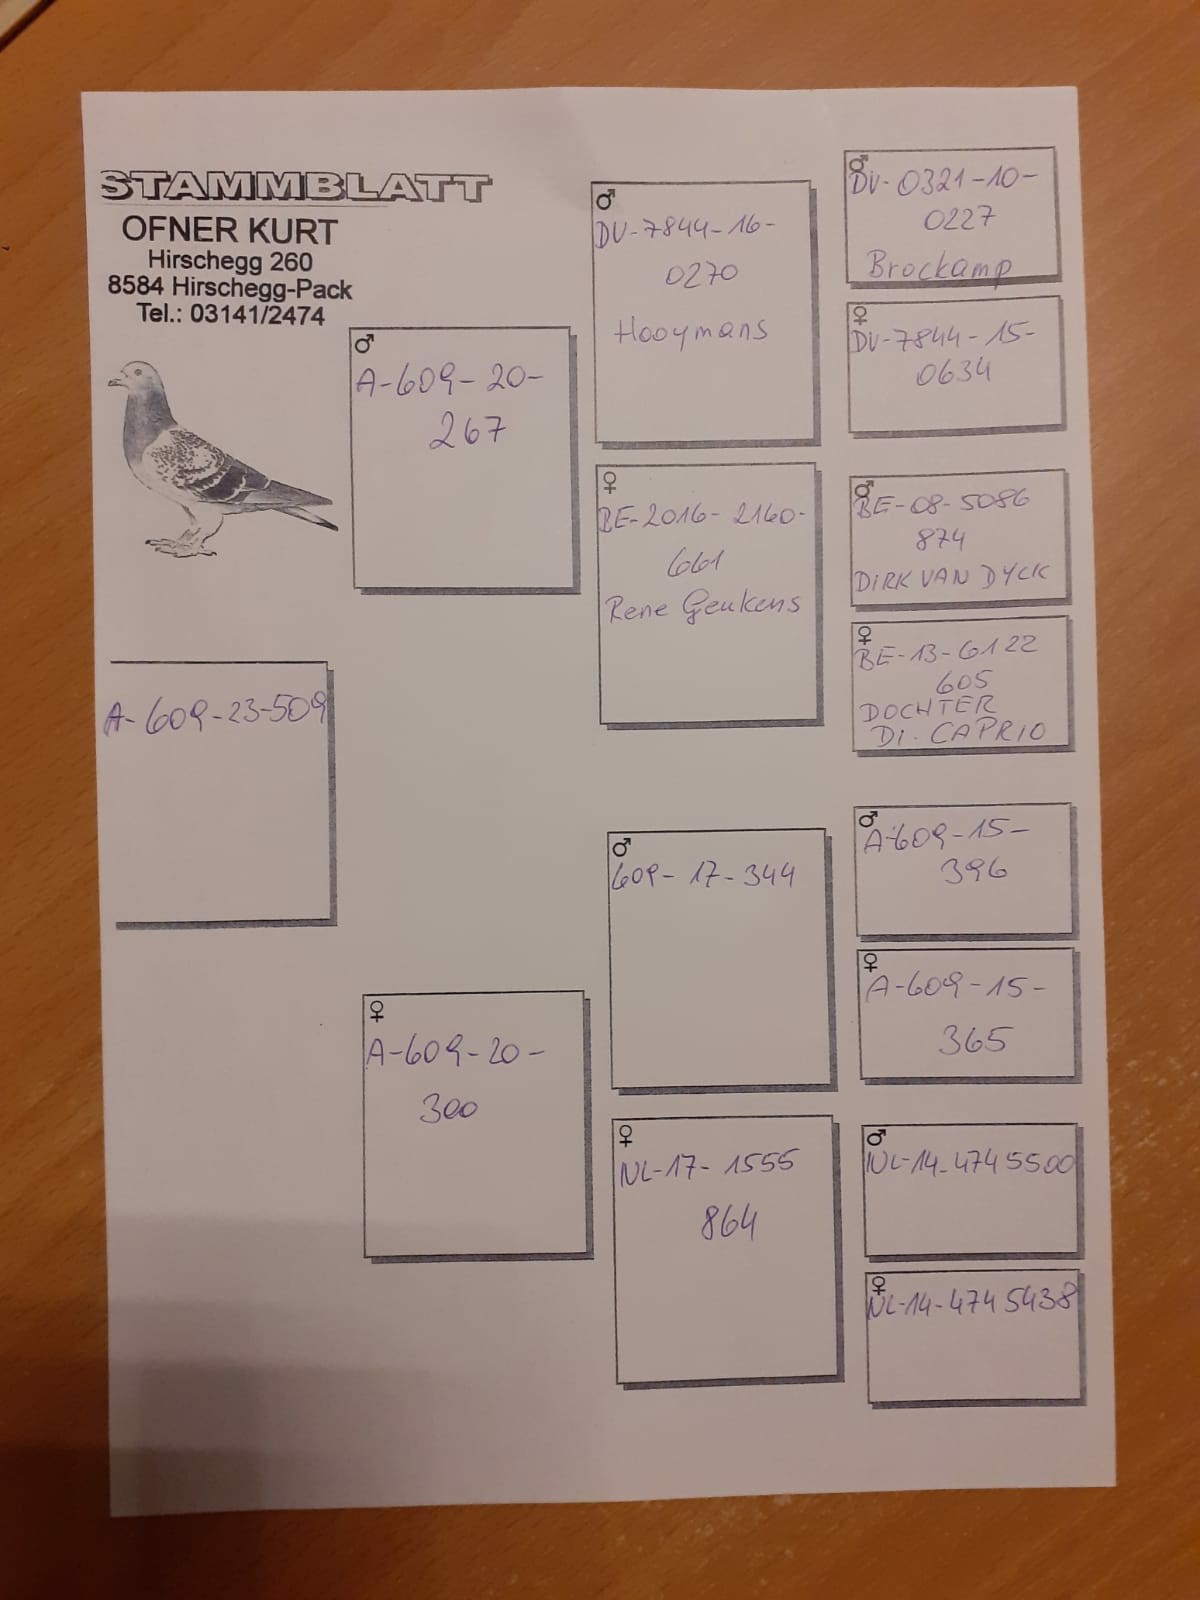 STAMMBLATT
OFNER KURT
Hirschegg 260
8584 Hirschegg-Pack
Tel.: 03141/2474
A-609-23-509
♂
A-609-20-
267
♀
A-609-20-
300
♂
DV-7844-16-
0270
Hooymans
♀
BE-2016-2160-
661
Rene Geukens
♂
609-17-344
♀
NL-17-1555
864
♂
DV-0321-10-
0227
Brockamp
♀
DV-7844-15-
0634
♂
BE-08-5086
874
DIRK VAN DYCK
♀
BE-13-6122
605
DOCHTER
DI. CAPRIO
♂
A-609-15-
396
♀
A-609-15-
365
♂
NL-14-4745500
♀
NL-14-4745438